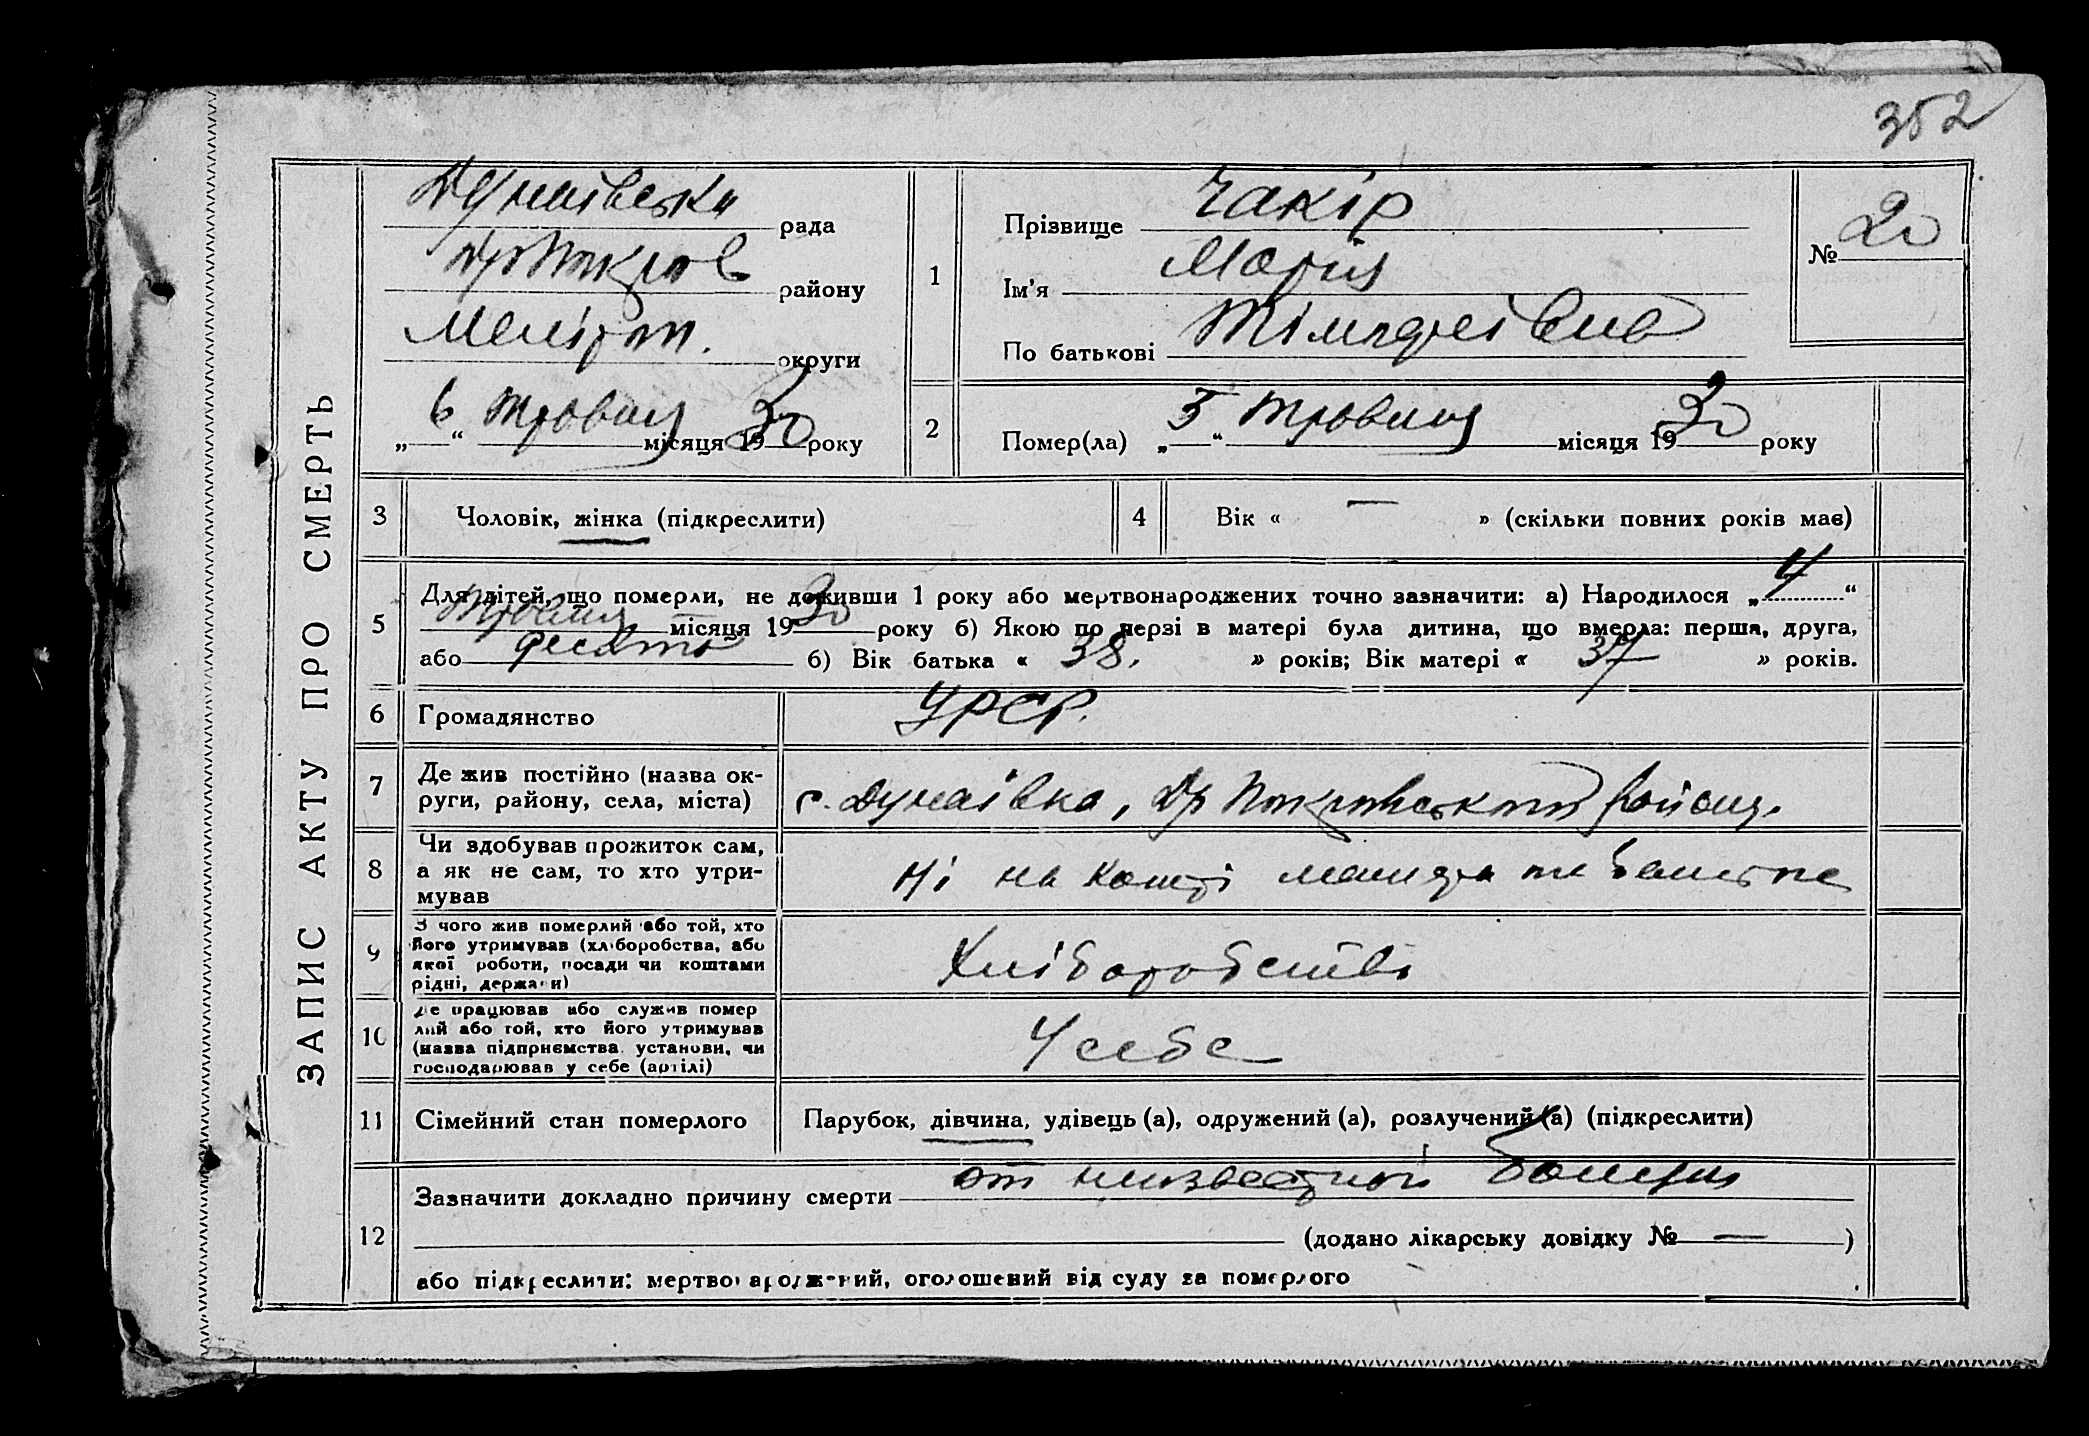 352
ЗАПИС АКТУ ПРО СМЕРТЬ
Дунаівська рада
района
Меліт. округи
„6“ травня місяця 1930 року
1
Прізвище Чакір
Ім'я Марія
По батькові
№ 20
2
Помер(ла) „5“ травня місяця 1930 року
3
Чоловік, жінка (підкреслити)
4
Вік « — » (скільки повних років має)
5
Для дітей, що померли, не доживши 1 року або мертвонароджених точно зазначити: а) Народилося „4“
травня місяця 1930 року б) Якою по черзі в матері була дитина, що вмерла: перша, друга,
або десята б) Вік батька « 38. » років; Вік матері « 37 » років.
6
Громадянство
УРСР.
7
Де жив постійно (назва ок-
руги, району, села, міста)
с. Дунаівка, Др Покровського району.
8
Чи здобував прожиток сам,
а як не сам, то хто утри-
мував
Ні на кошті матера та батька
9
З чого жив померлий або той, хто
його утримував (хліборобства, або
якої роботи, посади чи коштами
рідні, держави)
Хліборобства
10
Де працював або служив помер
лий або той, хто його утримував
(назва підприємства, установи, чи
господарював у себе (артілі)
У себе
11
Сімейний стан померлого
Парубок, дівчина, удівець (а), одружений (а), розлучений (а) (підкреслити)
12
Зазначити докладно причину смерти от неизвестной болезни
(додано лікарську довідку № — )
або підкреслити: мертвонароджений, оголошений від суду за померлого